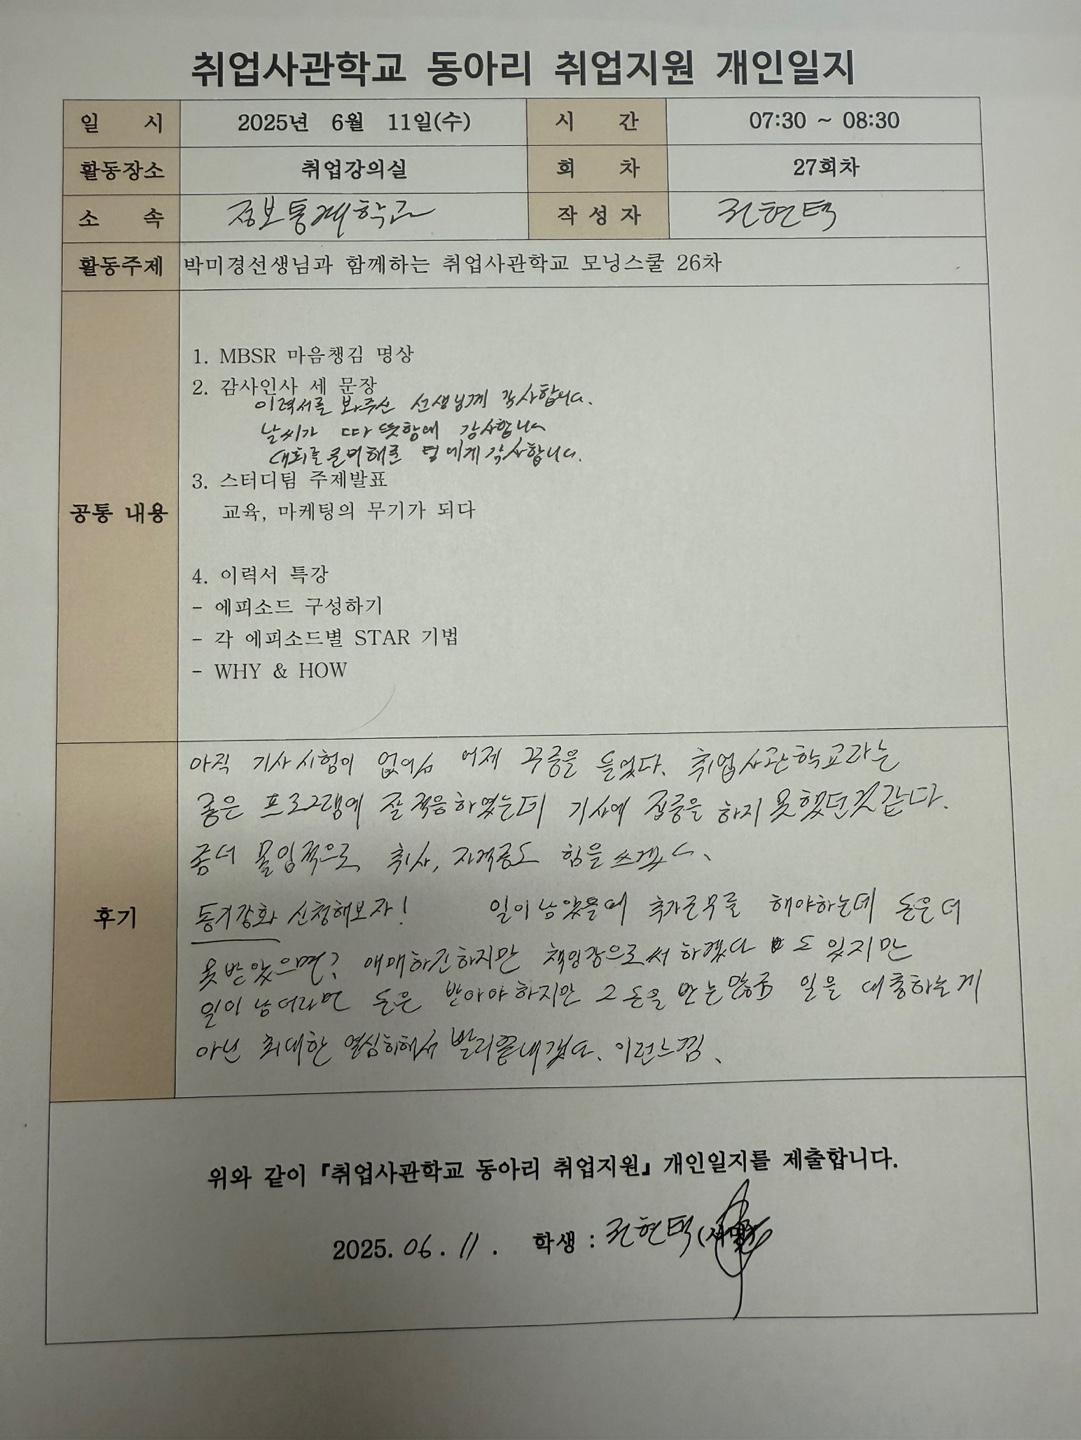 취업사관학교 동아리 취업지원 개인일지
일 시 2025년 6월 11일(수) 시 간 07:30 ~ 08:30
활동장소 취업강의실 회 차 27회차
소 속 정보통계학과 작성자 전현택
활동주제 박미경선생님과 함께하는 취업사관학교 모닝스쿨 26차
공통 내용
1. MBSR 마음챙김 명상
2. 감사인사 세 문장
이력서를 봐주신 선생님께 감사합니다.
날씨가 따뜻함에 감사합니다
대회를 준비해준 에게 감사합니다.
3. 스터디팀 주제발표
교육, 마케팅의 무기가 되다
4. 이력서 특강
- 에피소드 구성하기
- 각 에피소드별 STAR 기법
- WHY & HOW
후기
아직 기사시험이 없어서 어제 꾸중을 들었다. 취업사관학교라는
좋은 프로그램에 잘 적응하였는데 기사에 집중을 하지 못했던것같다.
좀더 몰입적으로 취사, 자격증도 힘을 쓰겠다.
동기강화 신청해보자! 일이 남았을때 추가근무를 해야하는데 돈을 더
못받았으면? 애매하긴하지만 책임감으로써 하겠다 도 있지만
일이 남더라면 돈은 받아야 하지만 그 돈을 받는 만큼 일을 대충하는게
아닌 최대한 열심히해서 빨리끝내겠다. 이런느낌.
위와 같이 『취업사관학교 동아리 취업지원』 개인일지를 제출합니다.
2025. 06. 11. 학생 : 전현택 (서명)